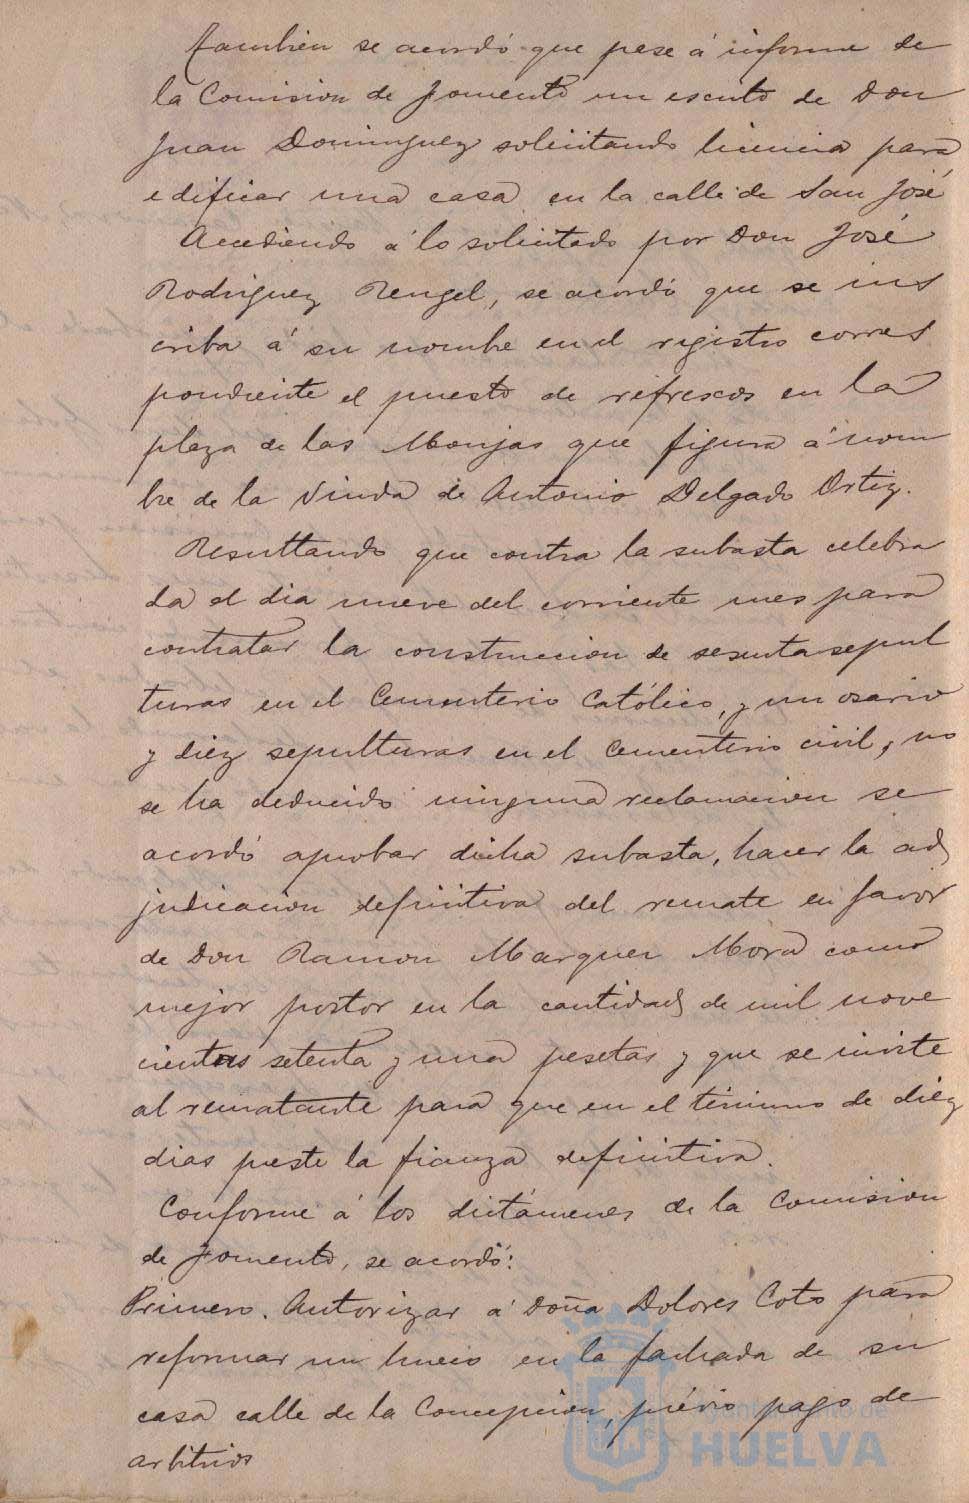 Tambien se acordó que pase á informe de
la Comision de Fomento un escrito de Don
Juan Dominguez solicitando licencia para
edificar una casa en la calle de San José
Accediendo á lo solicitado por Don José
Rodriguez Rengel, se acordó que se ins
criba á su nombre en el registro corres
pondiente el puesto de refrescos en la
plaza de las Monjas que figura á nom
bre de la Viuda de Antonio Delgado Ortiz.
Resultando que contra la subasta celebra
da el dia nueve del corriente mes para
contratar la construccion de sesenta sepul
turas en el Cementerio Católico, y un osario
y diez sepulturas en el Cementerio civil, no
se ha deducido ninguna reclamacion se
acordó aprobar dicha subasta, hacer la ad
judicacion definitiva del remate en favor
de Don Ramon Marquez Mora como
mejor postor en la cantidad de mil nove
cientas setenta y una pesetas y que se invite
al rematante para que en el término de diez
dias preste la fianza definitiva.
Conforme á los dictámenes de la Comision
de Fomento, se acordó:
Primero. Autorizar á Doña Dolores Coto para
reformar un hueco en la fachada de su
casa calle de la Concepcion, prévio pago de
arbitrios
Ayuntamiento de
HUELVA